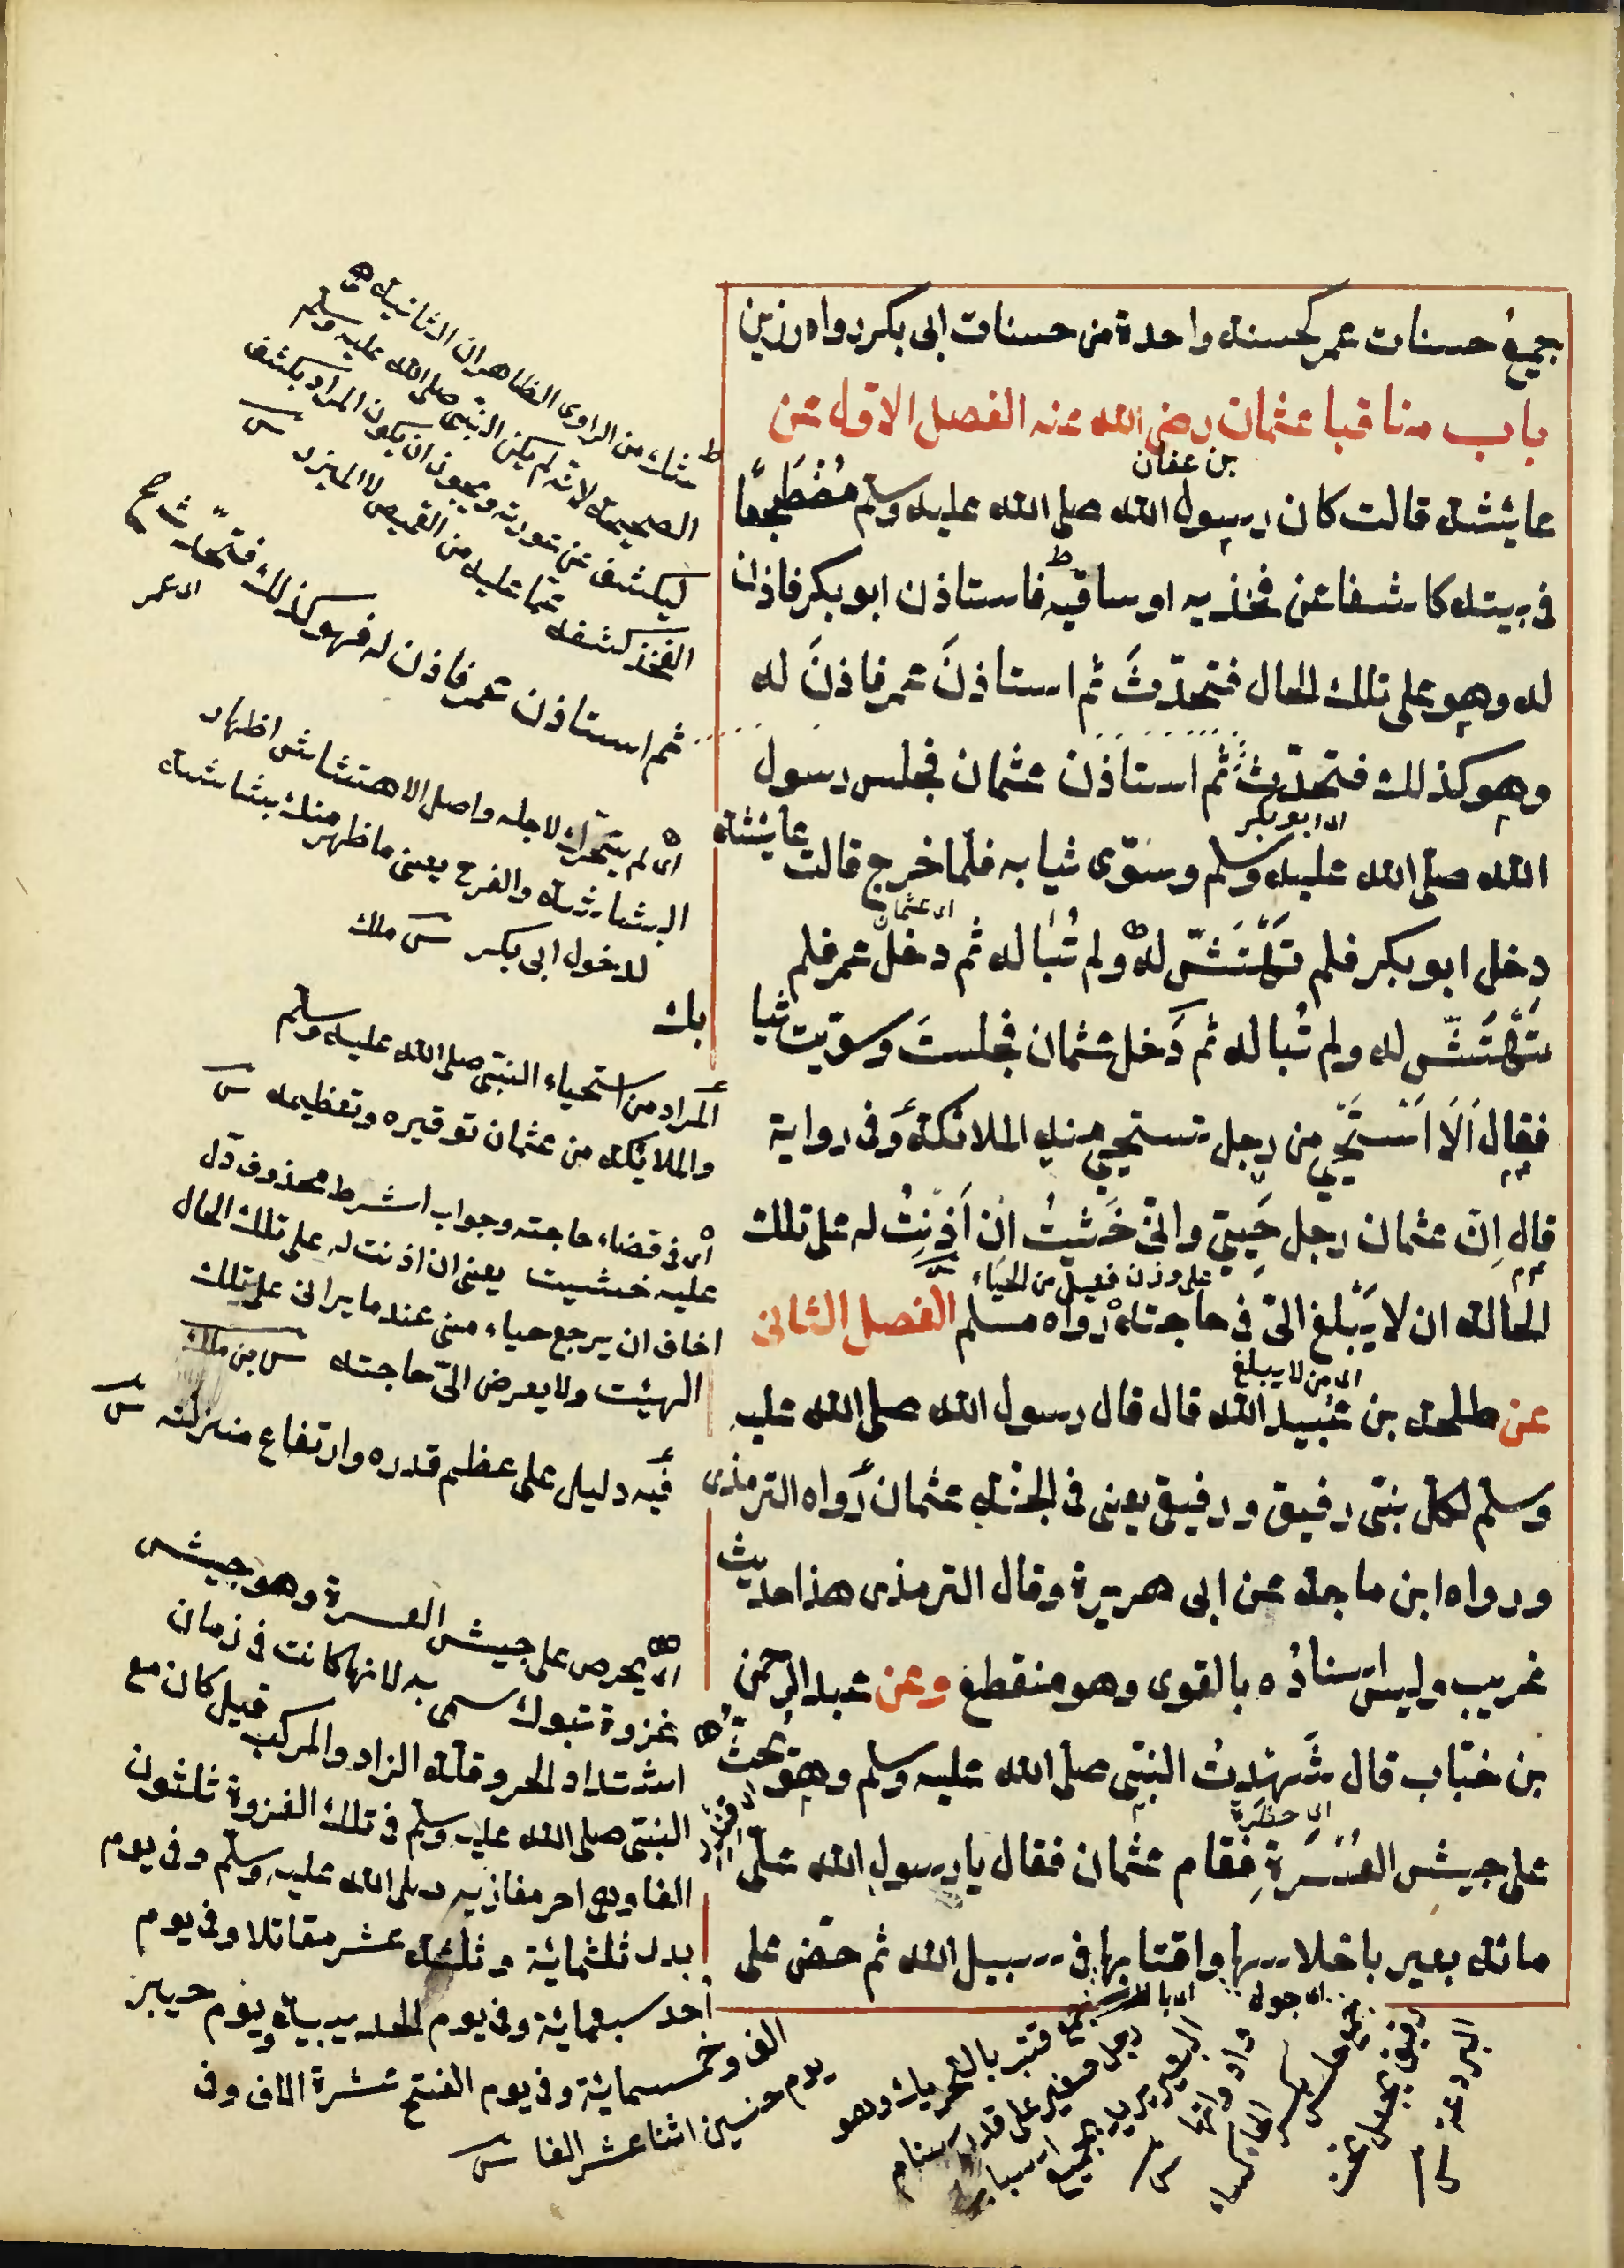 جميع حسنات عمر كحسنة واحدة من حسنات ابى بكر رواه رزين
باب مناقب عثمان رضى الله عنه الفصل الاول عن
بن عفان
عايشة قالت كان رسول الله صلى الله عليه وسلم مضطجعًا
فى بيته كاشفا عن فخذيه او ساقيه فاستاذن ابو بكر فاذن
له وهو على تلك الحال فتحدّثَ ثم استاذنَ عمر فاذنَ له
وهو كذلك فتحدّث ثم استاذن عثمان فجلس رسول
اى ابو بكر
الله صلى الله عليه وسلم وسوّى ثيابه فلما خرج قالت عايشة
اى عثمان
دخل ابو بكر فلم تَهْتَشّ له ولم تُبَاله ثم دخل عمر فلم
تَهْتَشّ له ولم تُباله ثم دَخل عثمان فجلستَ وسوّيت ثيا
بك
فقال اَلَا اَسْتَحْيِي من رجل تستحيي منه الملائكة وفى رواية
قال اِنّ عثمان رجل حَيِيّ وانّى خَشيتُ ان اَذِنتُ له على تلك
على وزن فعيل من الحياء
الحالة ان لا يَبْلغ الىّ فى حاجته رواه مسلم الفصل الثانى
اى من لا يبلغ
عن طلحة بن عُبيد الله قال قال رسول الله صلى الله عليه
وسلم لكل نبىّ رفيق ورفيقى يعنى فى الجنّة عثمان رواه الترمذى
ورواه ابن ماجة عن ابى هريرة وقال الترمذى هذا حديث
غريب وليس اسنادُه بالقوى وهو منقطع وعن عبد الرحمن
بن خبّاب قال شَهِدتُ النبى صلى الله عليه وسلم وهو يحثّ
على جيش العُسْرَةِ فقام عثمان فقال يا رسول الله علىّ
مائة بعير باحلاسها واقتابها فى سبيل الله ثم حضّ على
شك من الراوى الظاهر ان الثانية هى
الصحيحة لانه لم يكن النبى صلى الله عليه وسلم
ليكشف عن عورته ويجوز ان يكون المراد بكشف
الفخذ كشفه عما عليه من القميص لا الميزر
ثم استاذن عمر فاذن له فهو كذلك فتحدّث صح
اى عمر
اى لم يتحرك لاجله واصل الاهتشاش اظهار
البشاشة والفرح يعنى ما ظهر منك بشاشة
لدخول ابى بكر ملك
المراد من استحياء النبى صلى الله عليه وسلم
والملايكة من عثمان توقيره وتعظيمه
اى فى قضاء حاجته وجواب الشرط محذوف دلّ
عليه خشيت يعنى ان اذنت له على تلك الحال
اخاف ان يرجع حياء منى عندما يرانى على تلك
الهيئت ولا يعرض الىّ حاجته بن ملك
فيه دليل على عظيم قدره وارتفاع منزلته
اى يحرص على جيش العسرة وهو جيش
غزوة تبوك سمى به لانها كانت فى زمان
اشتداد الحر وقلة الزاد والمركب قيل كان مع
النبى صلى الله عليه وسلم فى تلك الغزوة ثلثون
الفا وهى اخر مغازيه صلى الله عليه وسلم وفى يوم
بدر ثلثمائة وثلثة عشر مقاتلا وفى يوم
احد سبعمائة وفى يوم الحديبية ويوم خيبر
الف وخمسمائة وفى يوم الفتح عشرة الاف وفى
يوم حنين اثنا عشر الفا
جمع قتب بالتحريك وهو
رحل صغير على قدر سنام
البعير يريد بجميع اسبابها